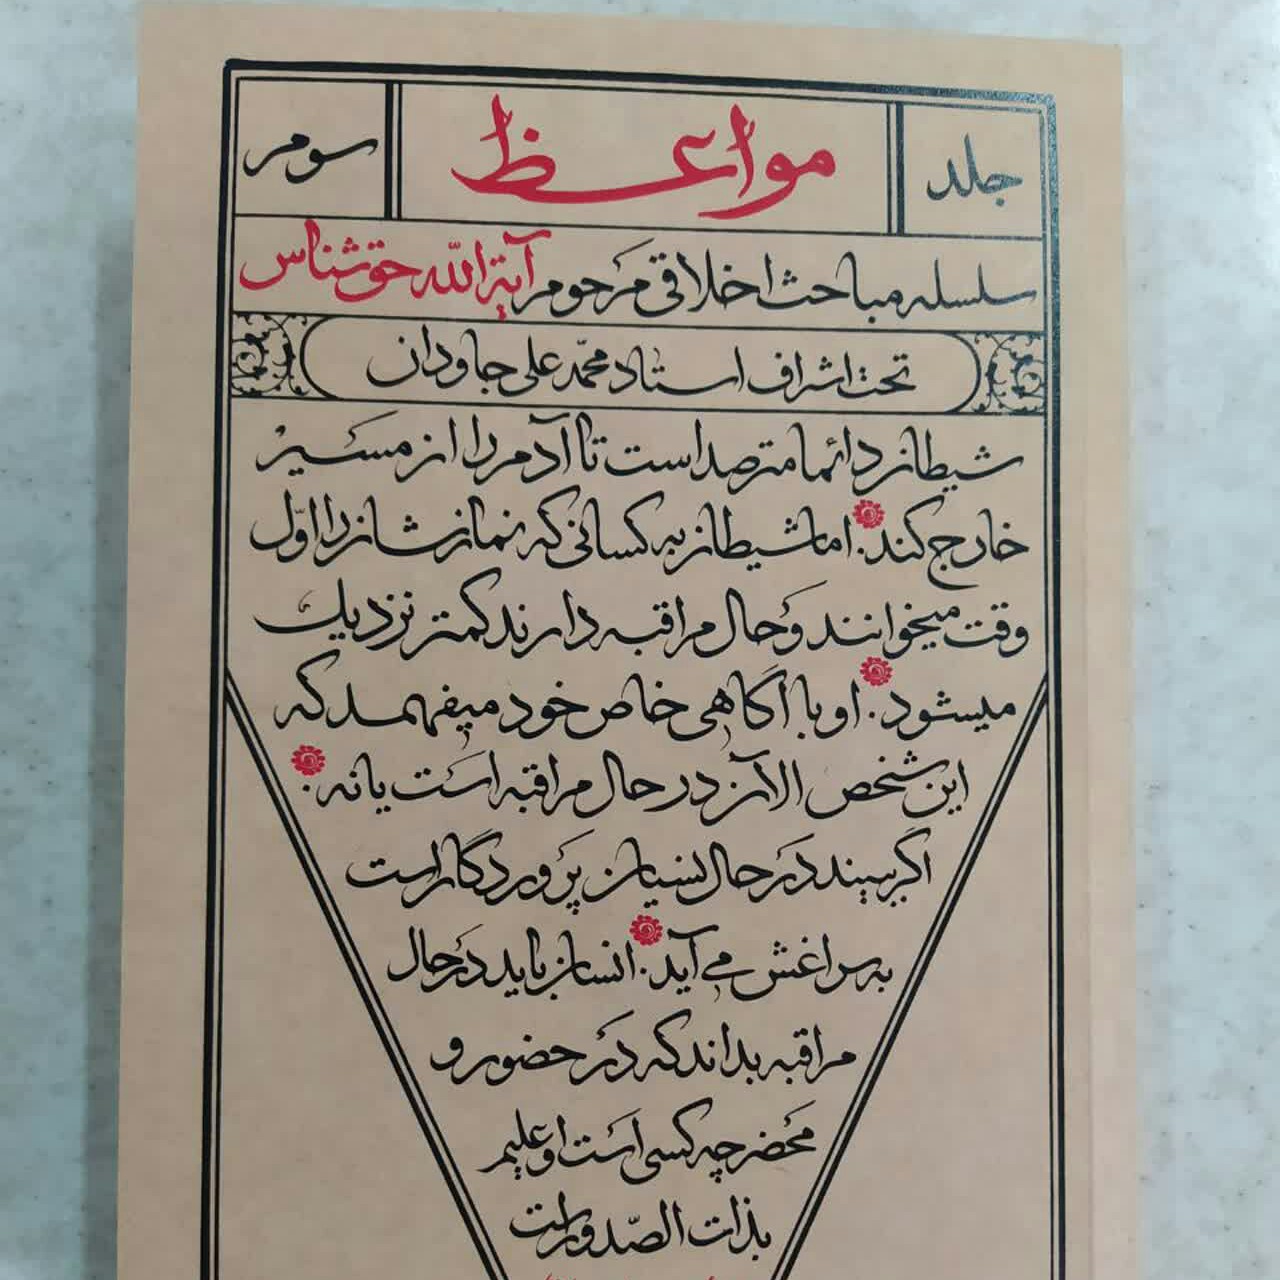 جلد مواعظ سوم
سلسله مباحث اخلاقی مرحوم آیة الله حق شناس
تحت اشراف استاد محمّد علی جاودان
شیطان دائما مترصد است تا آدم را از مسیر
خارج کند. اما شیطان به کسانی که نمازشان را اوّل
وقت میخوانند و حال مراقبه دارند کمتر نزدیک
میشود. او با آگاهی خاص خود میفهمد که
این شخص الآن در حال مراقبه است یا نه.
اگر ببیند در حال نسیان پروردگار است
به سراغش می آید. انسان باید در حال
مراقبه بداند که در حضور و
محضر چه کسی است او علیم
بذات الصّدور است